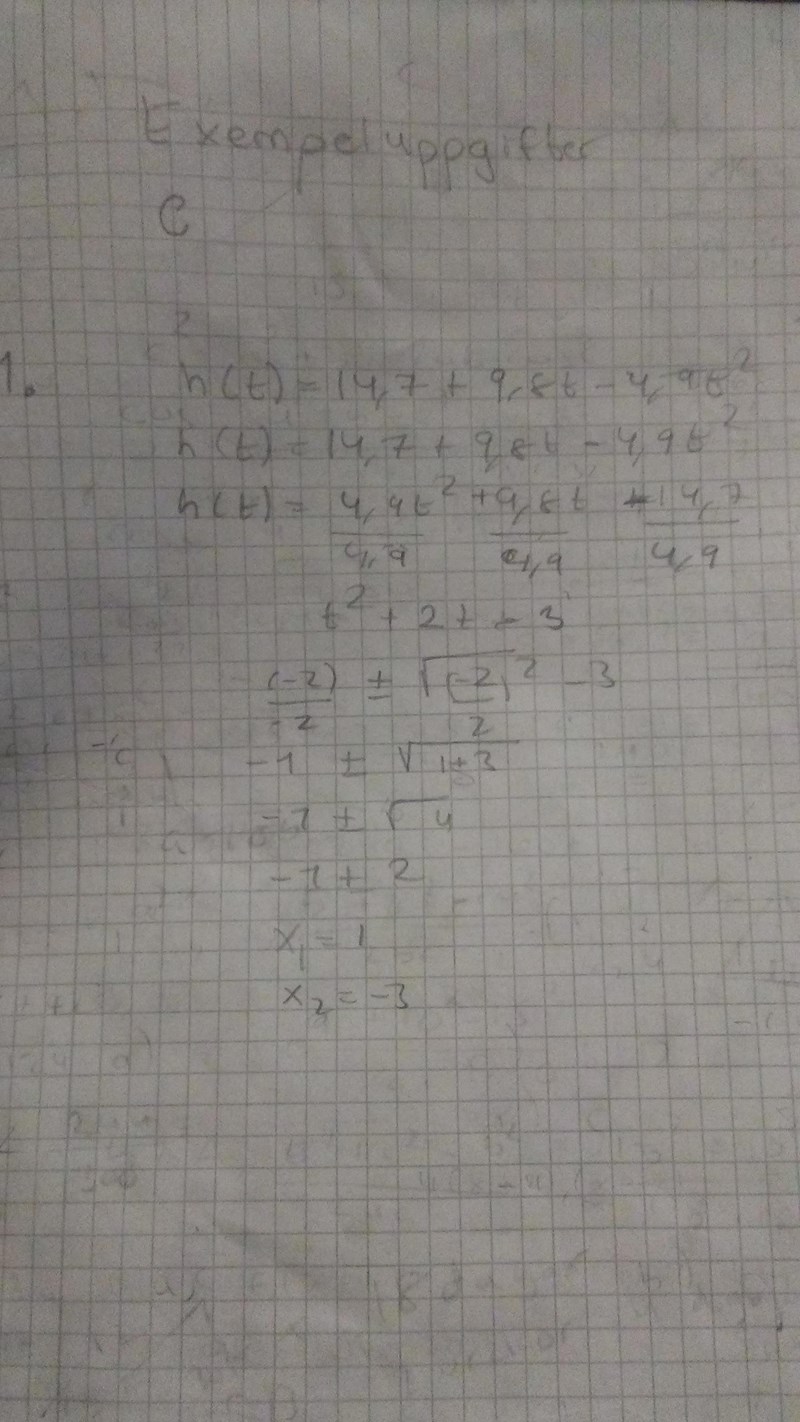 Exempeluppgifter
C
1. h(t) = 14,7 + 9,8t - 4,9t²
h(t) = 14,7 + 9,8t - 4,9t²
h(t) = 4,9t² + 9,8t - 14,7
4,9 4,9 4,9
t² + 2t - 3
(-2) ± √(-2)² - 3
-2 2
-1 ± √1+3
-1 ± √4
-1 ± 2
x₁ = 1
x₂ = -3